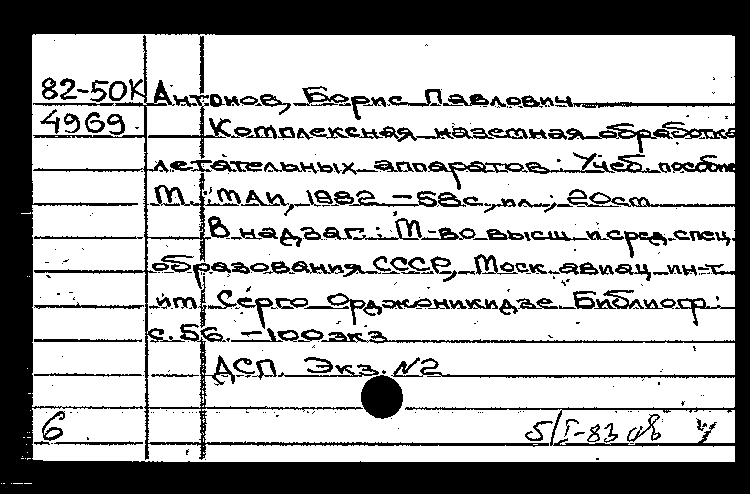 82-50К Антонов, Борис Павлович
4969 Комплексная наземная обработка
летательных аппаратов: Учеб. пособие
М.: МАИ, 1982 – 58с., ил.; 20см
В надзаг.: М-во высш. и сред. спец.
образования СССР, Моск. авиац. ин-т
им. Серго Орджоникидзе Библиогр.:
с. 56. – 100 экз
ДСП. Экз. N2
6 5/I-83